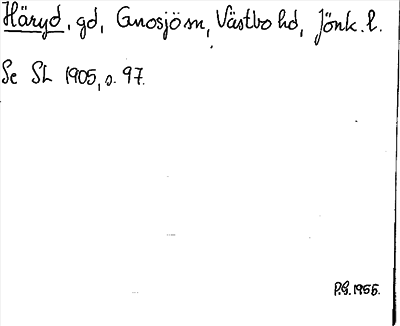 Häryd, gd, Gnosjö sn, Västbo hd, Jönk. l.
Se SL 1905, s. 97.
P.G. 1955.